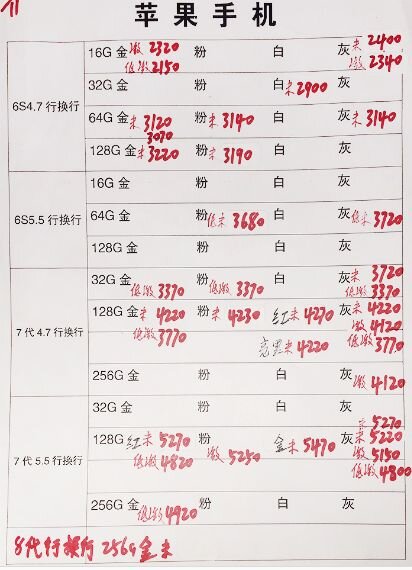 苹果手机
6S4.7 行换行
16G 金 激 2320 粉 白 灰 未 2400
低激 2150 激 2340
32G 金 粉 白 未 2900 灰
64G 金 未 3120 粉 未 3140 白 灰 未 3140
3070
128G 金 未 3220 粉 未 3190 白 灰
6S5.5 行换行
16G 金 粉 白 灰
64G 金 粉 低未 3680 白 灰 低未 3720
128G 金 粉 白 灰
7 代 4.7 行换行
32G 金 粉 白 灰 未 3720
低激 3370 低激 3370 低激 3370
128G 金 未 4220 粉 未 4230 红 未 4270 灰 未 4220
低激 3770 激 4120
亮黑 未 4220 低激 3770
256G 金 粉 白 灰 激 4120
7 代 5.5 行换行
32G 金 粉 白 灰
5270
128G 红 未 5270 粉 金 未 5470 灰 未 5220
低激 4820 激 5250 激 5150
低激 4800
256G 金 粉 白 灰
低激 4920
8代行换行 256G 金 未